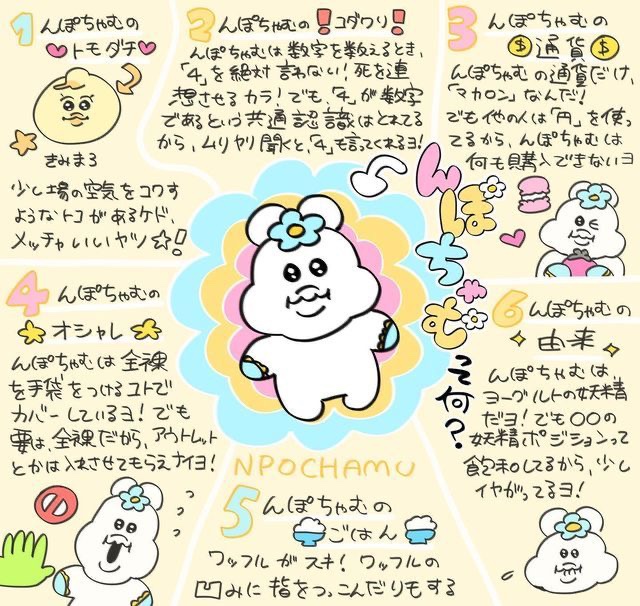 1 んぽちゃむの
♥トモダチ♥
きみまろ
少し場の空気をコワす
ようなトコがあるケド、
メッチャいいヤツ☆!
2 んぽちゃむの❗コダワリ❗
んぽちゃむは数字を数えるとき、
「4」を絶対言わない!死を連
想させるカラ!でも、「4」が数字
であるという共通認識はとれてる
から、ムリヤリ聞くと、「4」も言ってくれるヨ!
3 んぽちゃむの
$通貨$
んぽちゃむの通貨だけ、
「マカロン」なんだ!
でも他の人は「円」を使っ
てるから、んぽちゃむは
何も購入できないヨ
んぽちゃむって何?
4 んぽちゃむの
オシャレ
んぽちゃむは全裸
を手袋をつけるコトで
カバーしているヨ!でも
要は、全裸だから、アウトレット
とかは入れさせてもらえナイヨ!
NPOCHAMU
5 んぽちゃむの
ごはん
ワッフルがスキ!ワッフルの
凹みに指をつっこんだりもする
6 んぽちゃむの
由来
んぽちゃむは、
ヨーグルトの妖精
だヨ!でも○○の
妖精ポジションって
飽和してるから、少し
イヤがってるヨ!